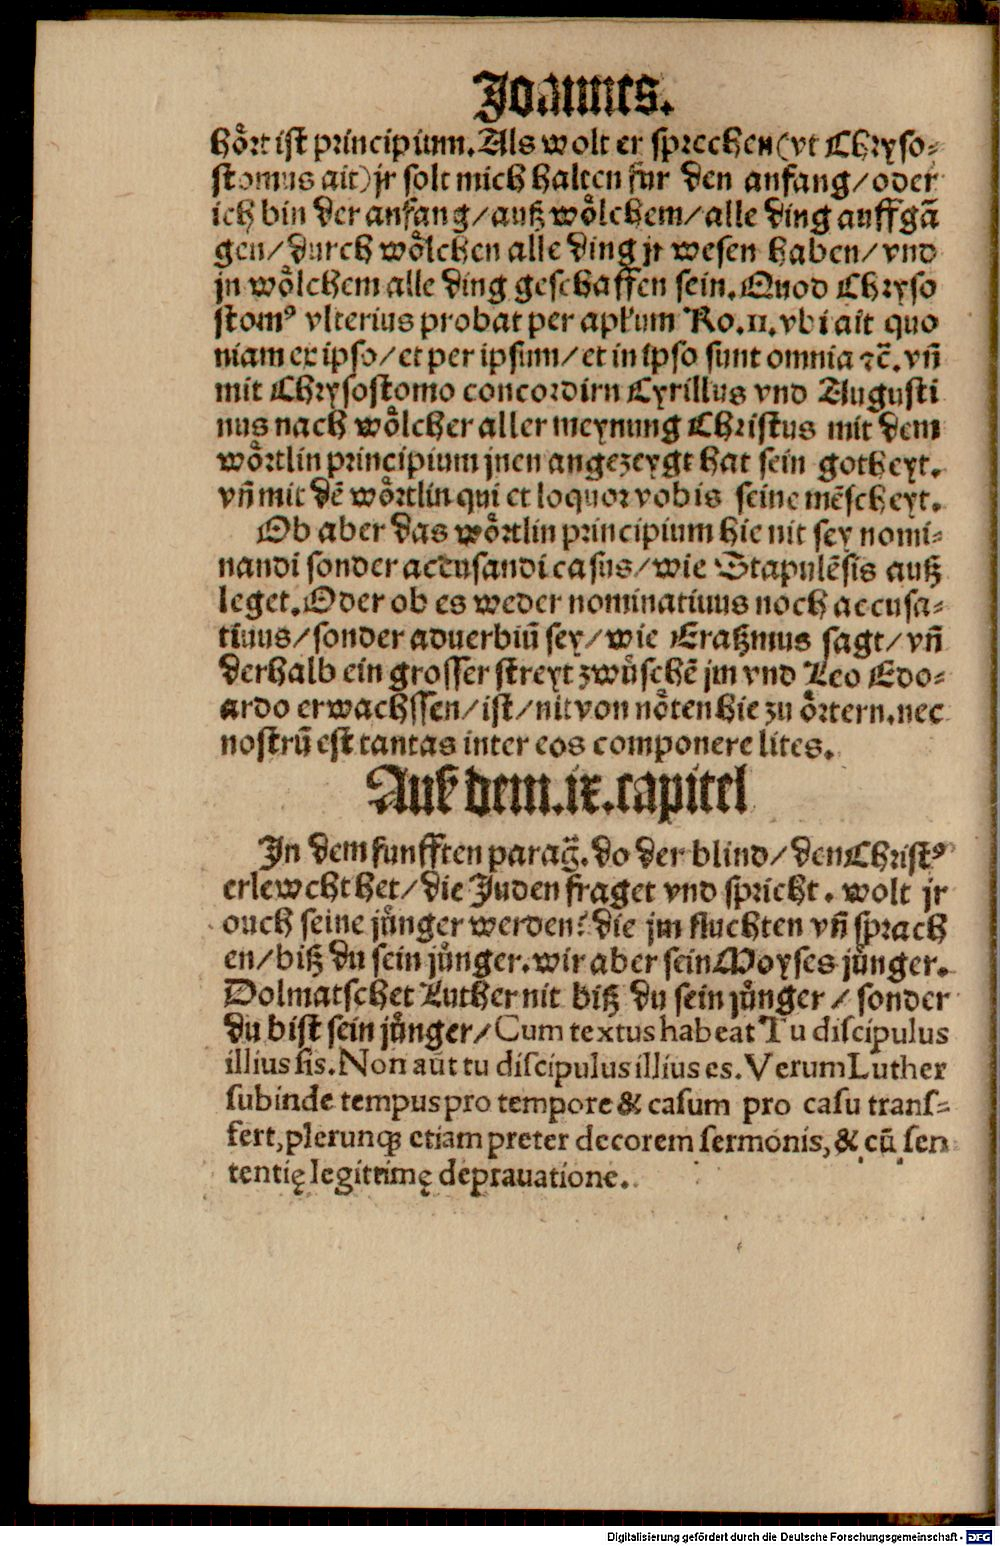 Joannes.
hoͤrt ist principium. Als wolt er sprechen (vt Chryso⸗
stomus ait) jr solt mich halten fur den anfang / oder
ich bin der anfang / auß woͤlchem / alle ding auffgā
gen / durch woͤlchen alle ding jr wesen haben / vnd
jn woͤlchem alle ding geschaffen sein. Quod Chryso
stomꝰ vlterius probat per apłum Ro. 11. vbi ait quo
niam ex ipso / et per ipsum / et in ipso sunt omnia ⁊c̄. vñ
mit Chrysostomo concordirn Cyrillus vnd Augusti
nus nach woͤlcher aller meynung Christus mit dem
woͤrtlin principium jnen angezeygt hat sein gotheyt.
vñ mit dē woͤrtlin qui et loquor vobis seine mēscheyt.
Ob aber das woͤrtlin principium hie nit sey nomi⸗
nandi sonder accusandi casus / wie Stapulēsis auß
leget. Oder ob es weder nominatiuus noch accusa⸗
tiuus / sonder aduerbiū sey / wie Eraßmus sagt / vñ
derhalb ein grosser streyt zwuͤschē jm vnd Leo Edo⸗
ardo erwachssen / ist / nit von noͤten hie zu oͤrtern. nec
nostrū est tantas inter eos componere lites.
Auß dem. ix. capitel
In dem funfften parag̃. do der blind / den Christꝰ
erlewcht het / die Juden fraget vnd spricht. wolt jr
ouch seine juͤnger werden? die jm fluchten vñ sprach
en / biß du sein juͤnger. wir aber sein Moyses juͤnger.
Dolmatschet Luther nit biß du sein juͤnger / sonder
du bist sein juͤnger / Cum textus habeat Tu discipulus
illius sis. Non aūt tu discipulus illius es. Verum Luther
subinde tempus pro tempore & casum pro casu trans⸗
fert, plerunqꝫ etiam preter decorem sermonis, & cū sen
tentię legittimę deprauatione.
Digitalisierung gefördert durch die Deutsche Forschungsgemeinschaft - DFG